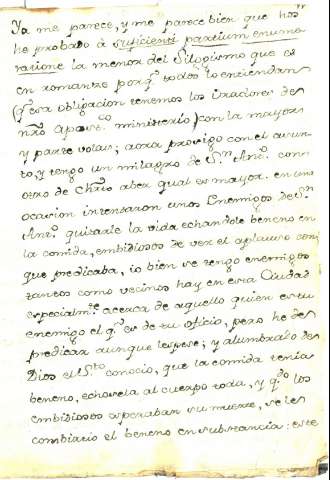 Ya me parece, y me parece bien que hos
he probado à sufficienti partium enume
ratione la menor del Silogismo que es
en romanze porq.e todos lo entiendan
q.e esa obligacion tenemos los oradores de
nrō Apost.co ministerio, con la mayor
y parte
y tengo un milagro de S.n Ant.o con
otro de Chrto aber qual es mayor. en una
ocasion intentaron unos Enemigos de S.n
Ant.o quitarle la vida echandole beneno en
la comida, embidiosos de ver el aplauso con
que predicaba, io bien se tengo enemigos
tantos como vecinos hay en esta Ciudad
especialm.te acerca de aquello quien es tu
enemigo el q.e es de tu oficio, pero he de
predicar aunque les pese; y alumbrado de
Dios el S.to conocio, que la comida tenia
beneno, echosela al cuerpo toda, y q.do los
embidiosos esperaban su muerte, se les
combirtio el beneno en substancia: este